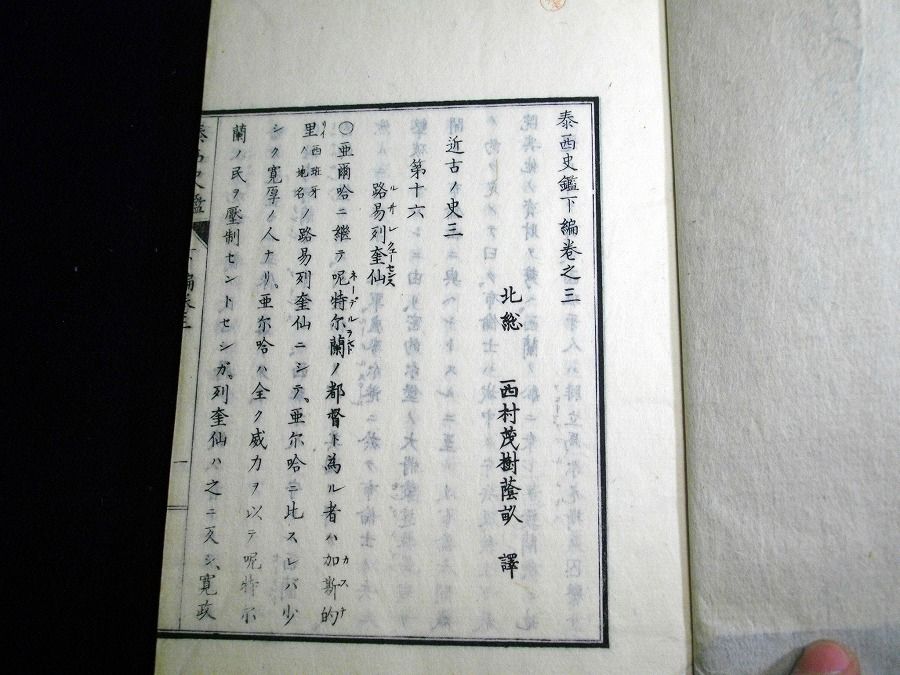 泰西史鑑下編卷之三
北総 西村茂樹蔭畝 譯
近古ノ史三
第十六
路易列奎仙
ルイ レクーセンス
○亜爾哈ニ継テ呢特尓蘭ノ都督ト為ル者ハ加斯的
ネーデルランド カステ
里西班牙ノ地名ノ路易列奎仙ニシテ、亜尓哈ニ比スレバ少
リイ
シク寛厚ノ人ナリ、亜尓哈ハ全ク威力ヲ以テ呢特尓
蘭ノ民ヲ壓制セントセシガ、列奎仙ハ之ニ反シ、寛政
泰西史鑑 下編卷三 一